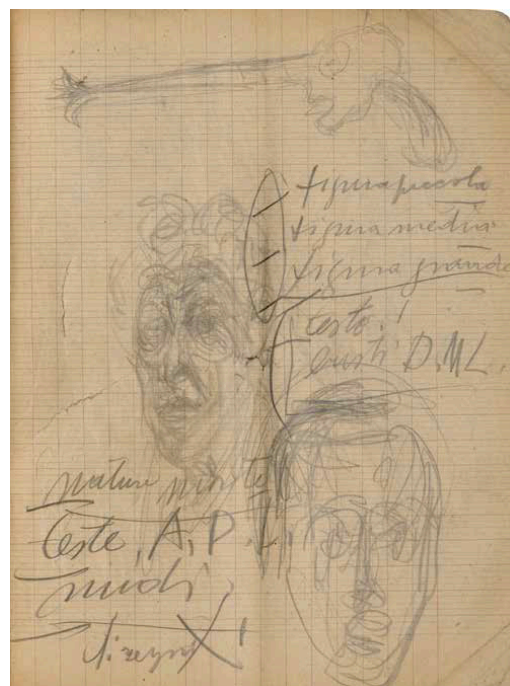 figura piccola
figura media
figura grande
teste!
busti D.M.L.
nature morte
teste, A, D. L.
nudi